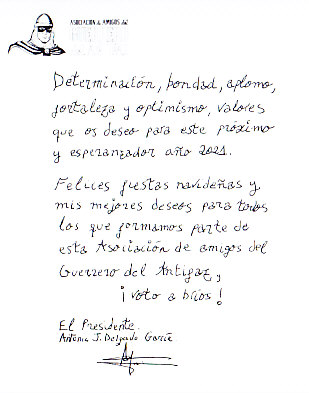 ASOCIACIÓN de AMIGOS del
Determinación, bondad, aplomo,
fortaleza y optimismo, valores
que os deseo para este próximo
y esperanzador año 2021.
Felices fiestas navideñas y
mis mejores deseos para todos
los que formamos parte de
esta Asociación de amigos del
Guerrero del Antifaz,
¡voto a bríos!
El Presidente.
Antonio J. Delgado García